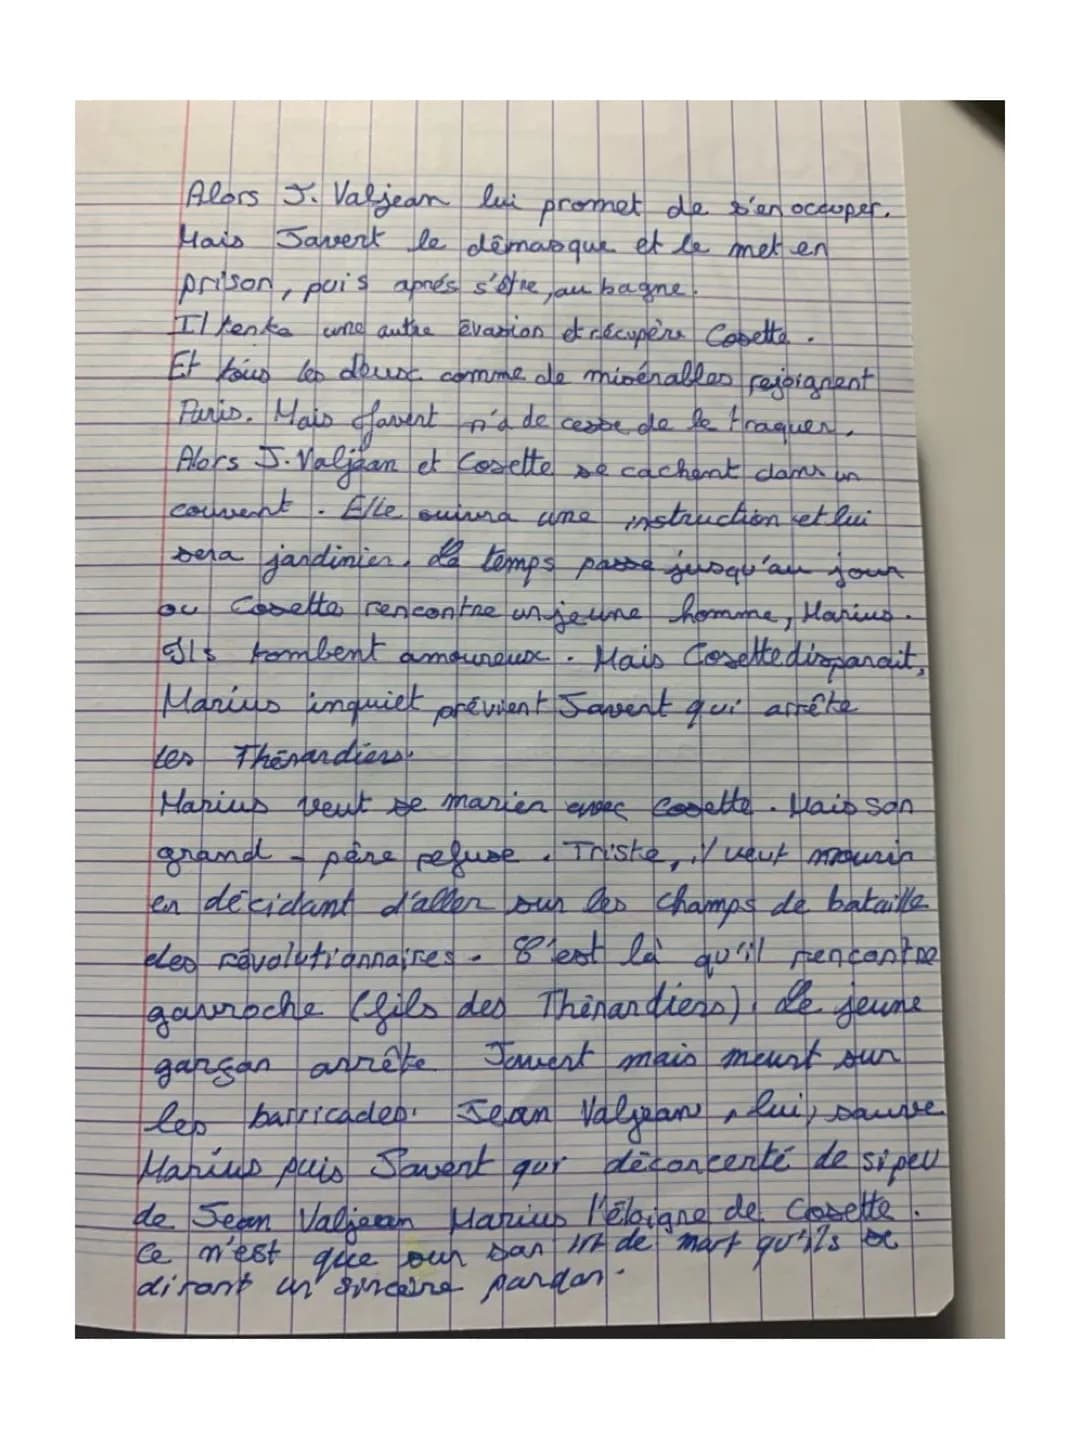 Alors J. Valjean lui promet de s'en occuper.
Mais Javert le démasque et le met en
prison, puis après s'être, au bagne.
Il tenta une autre évasion et récupère Cosette.
Et tous les deux comme de misérables rejoignent
Paris. Mais Javert n'a de cesse de le traquer.
Alors J. Valjean et Cosette se cachent dans un
couvent. Elle suivra une instruction et lui
sera jardinier. Le temps passe jusqu'au jour
ou Cosette rencontre un jeune homme, Marius.
Ils tombent amoureux. Mais Cosette disparait,
Marius inquiet prévient Javert qui arrête
les Thénardiers.
Marius veut se marier avec Cosette. Mais son
grand-père refuse. Triste, il veut mourir
en décidant d'aller sur les champs de bataille
des révolutionnaires. C'est là qu'il rencontre
gavroche (fils des Thénardiers). Le jeune
garçon arrête Javert mais meurt sur
les barricades. Jean Valjean, lui, sauve
Marius puis Javert qui déconcerté de si peu
de Jean Valjean Marius l'éloigne de Cosette.
Ce n'est que sur son lit de mort qu'ils se
diront un sincère pardon.